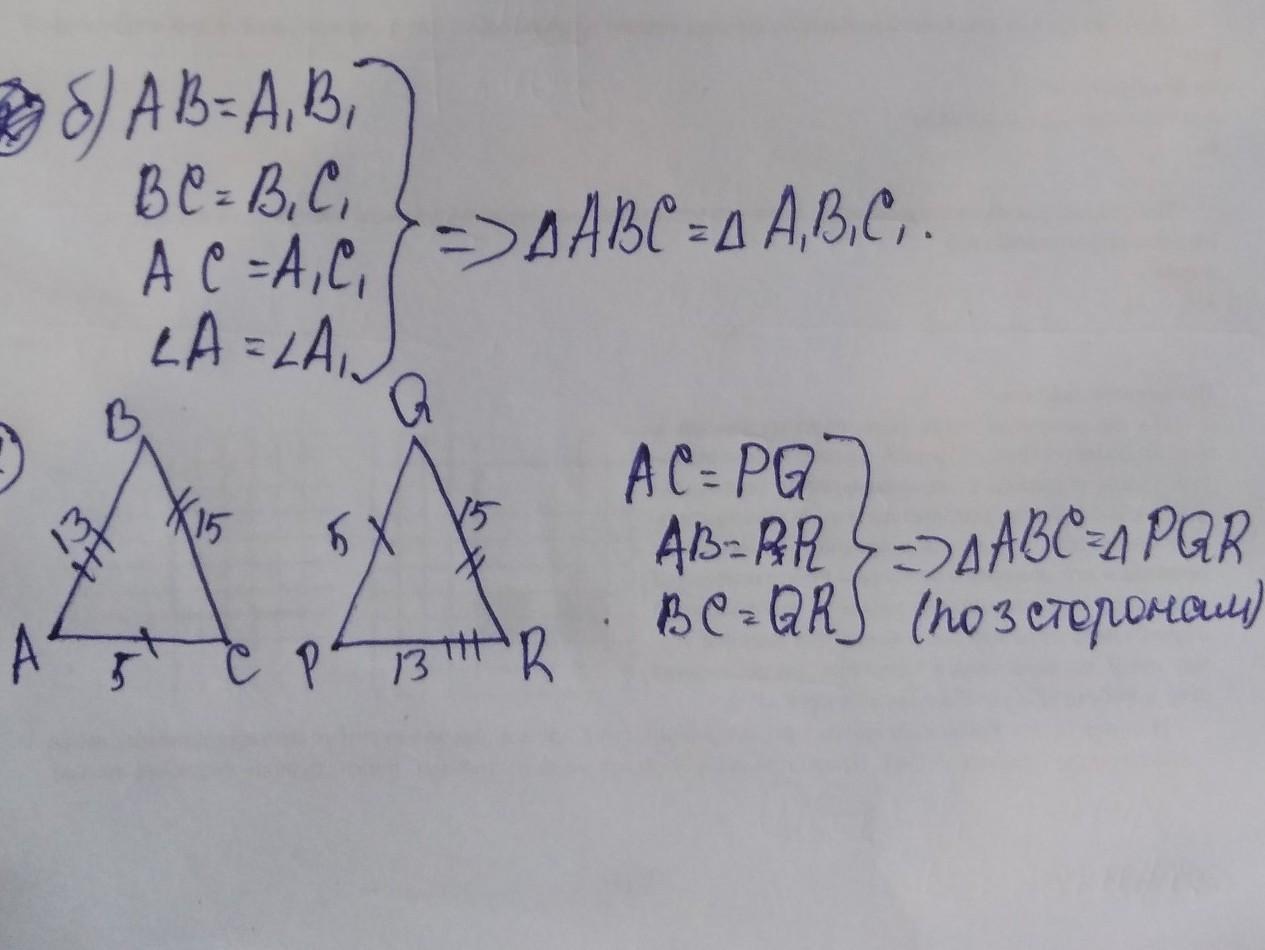 б) AB = A₁B₁
BC = B₁C₁
AC = A₁C₁
∠A = ∠A₁
=> ΔABC = ΔA₁B₁C₁.
B
13
15
A
5
C
Q
5
15
P
13
R
AC = PQ
AB = PR
BC = QR
=> ΔABC = ΔPQR
(по 3 сторонам)